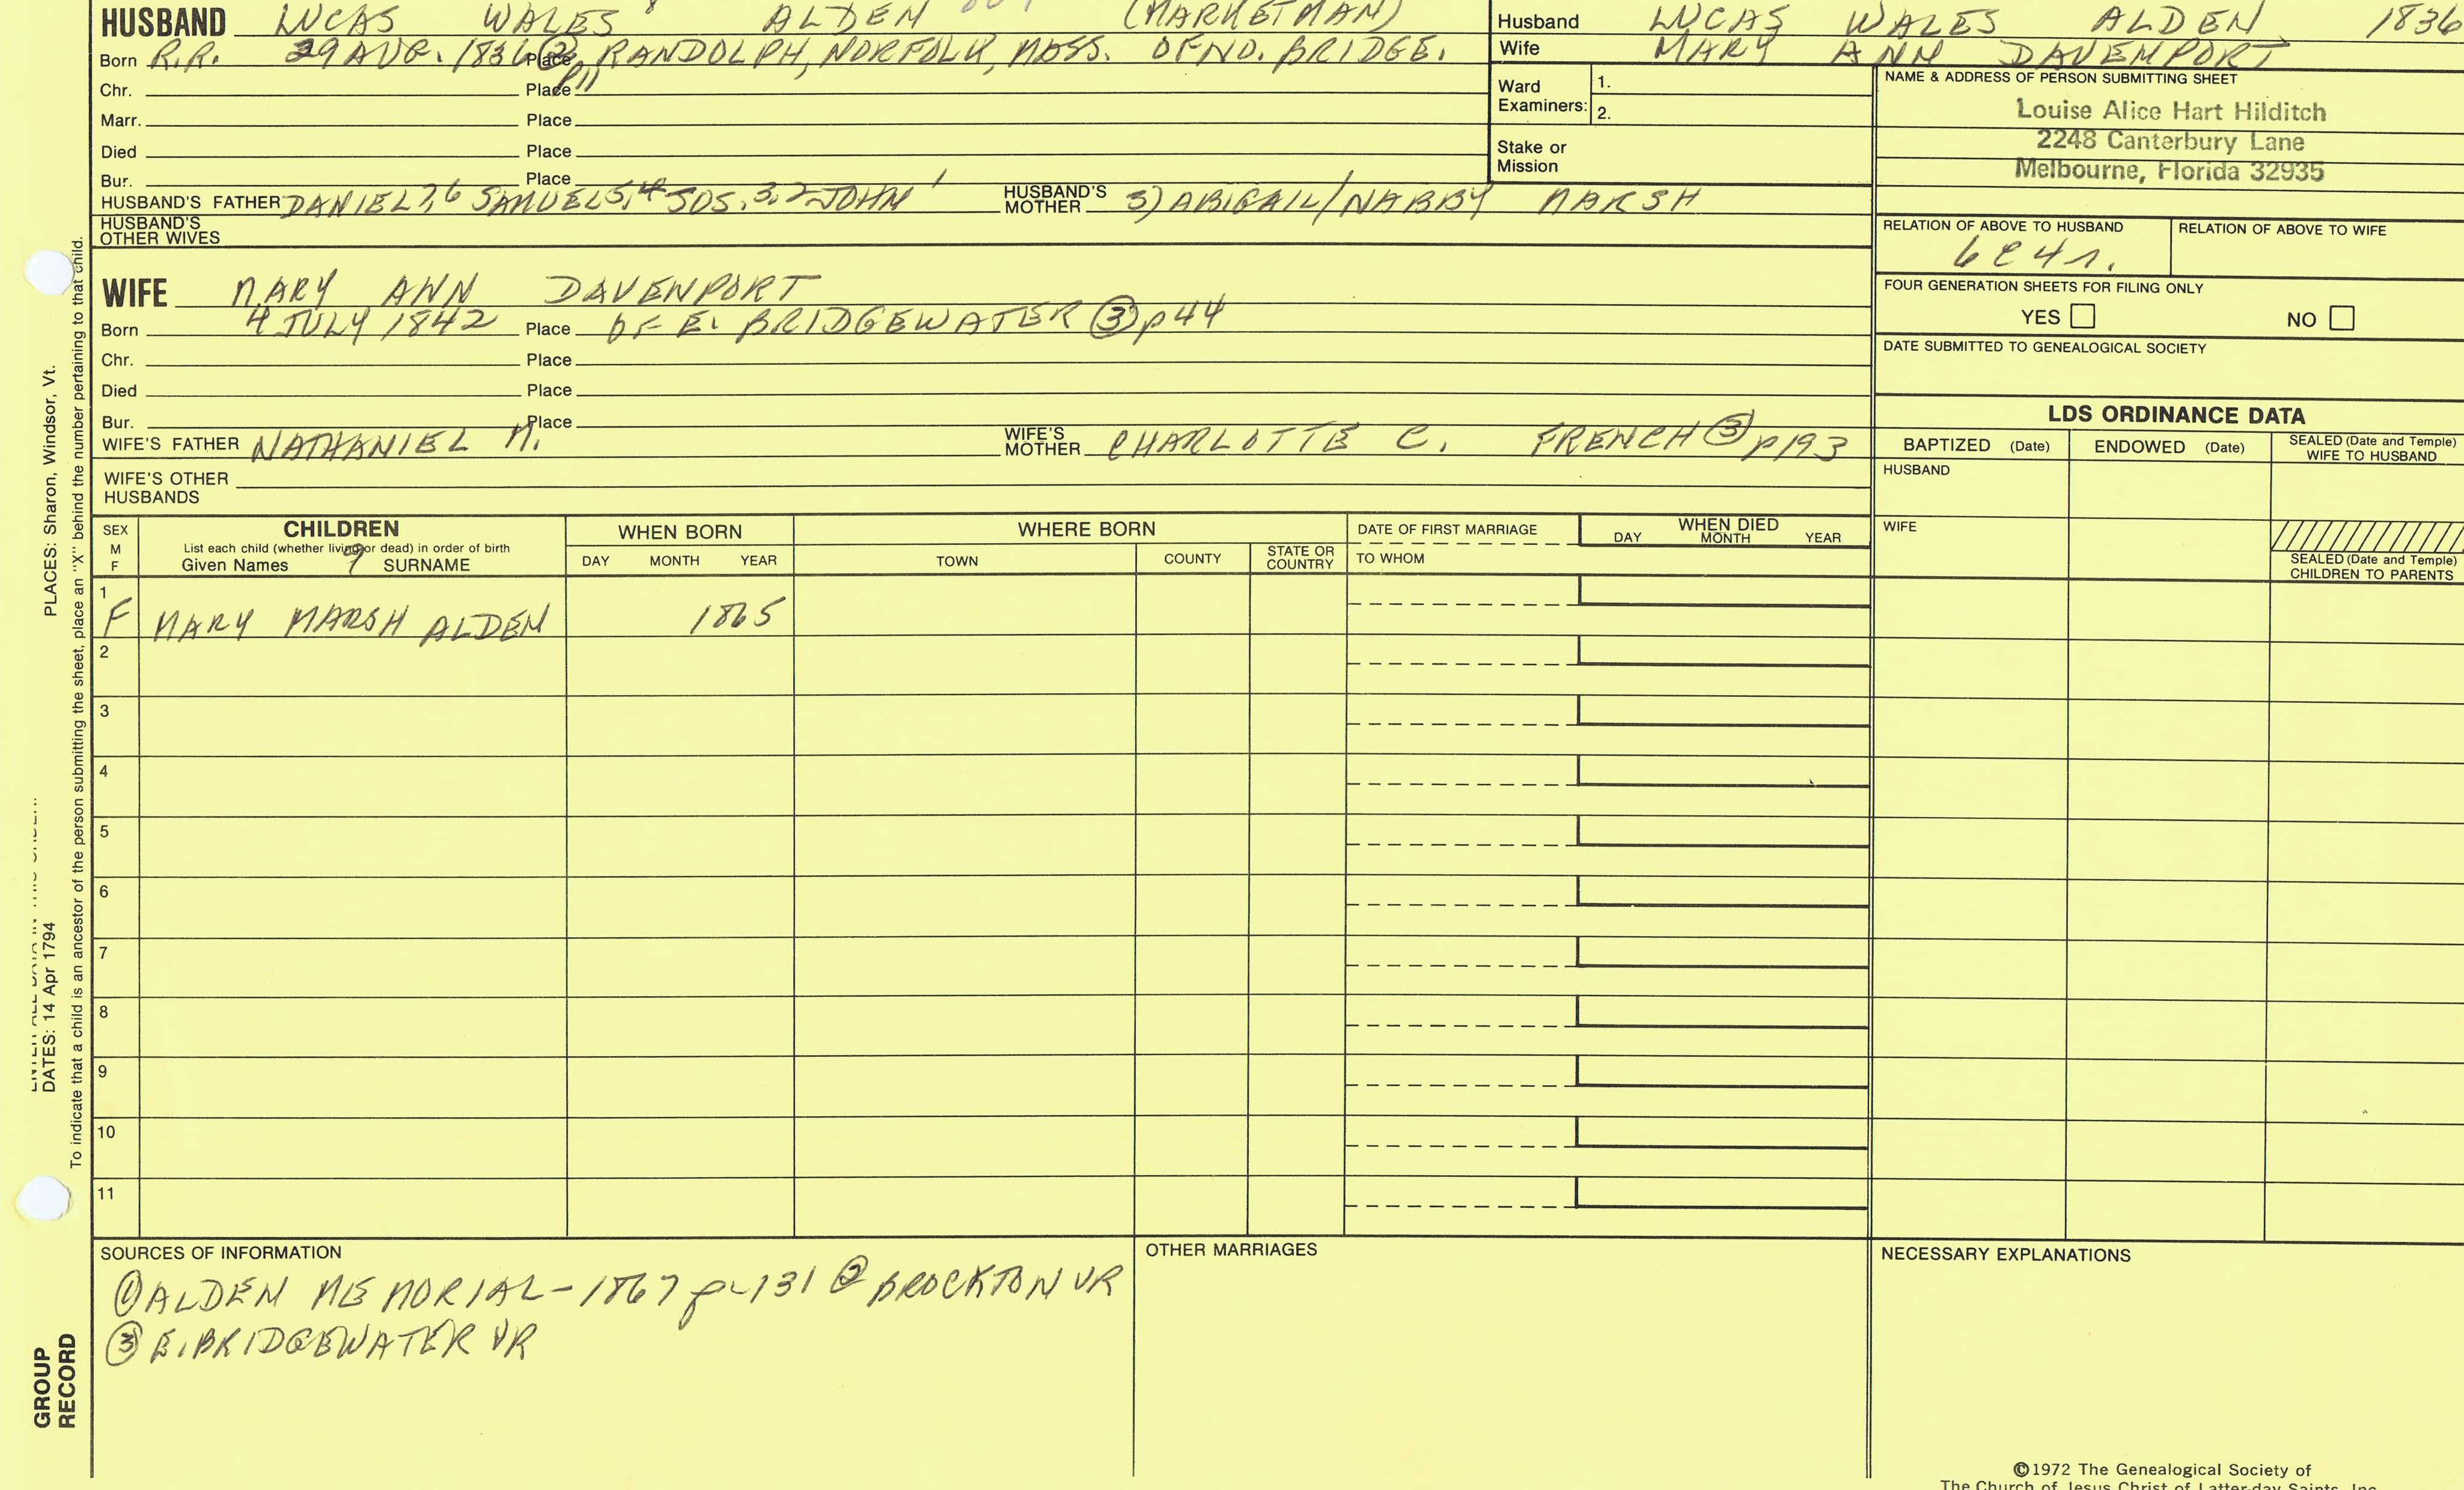 HUSBAND LUCAS WALES 8 ALDEN (MARKETMAN)
Born R.R. 29 AUG. 1836 ② Place RANDOLPH, NORFOLK, MASS. OF NO. BRIDGE.
p11
Chr. Place
Marr. Place
Died Place
Bur. Place
HUSBAND'S FATHER DANIEL 7,6 SAMUEL 5,4 JOS. 3,2 JOHN 1 HUSBAND'S MOTHER 3) ABIGAIL/NABBY MARSH
HUSBAND'S OTHER WIVES
WIFE MARY ANN DAVENPORT
Born 4 JULY 1842 Place OF E. BRIDGEWATER ③ p44
Chr. Place
Died Place
Bur. Place
WIFE'S FATHER NATHANIEL M. WIFE'S MOTHER CHARLOTTE C. FRENCH ③ p193
WIFE'S OTHER HUSBANDS
Husband LUCAS WALES ALDEN 1836
Wife MARY ANN DAVENPORT
Ward Examiners: 1.
2.
Stake or Mission
NAME & ADDRESS OF PERSON SUBMITTING SHEET
Louise Alice Hart Hilditch
2248 Canterbury Lane
Melbourne, Florida 32935
RELATION OF ABOVE TO HUSBAND RELATION OF ABOVE TO WIFE
6C4R.
FOUR GENERATION SHEETS FOR FILING ONLY
YES NO
DATE SUBMITTED TO GENEALOGICAL SOCIETY
LDS ORDINANCE DATA
BAPTIZED (Date) ENDOWED (Date) SEALED (Date and Temple) WIFE TO HUSBAND
HUSBAND
WIFE
SEALED (Date and Temple)
CHILDREN TO PARENTS
SEX M F CHILDREN WHEN BORN WHERE BORN DATE OF FIRST MARRIAGE WHEN DIED
List each child (whether living or dead) in order of birth
Given Names 9 SURNAME DAY MONTH YEAR TOWN COUNTY STATE OR COUNTRY TO WHOM DAY MONTH YEAR
1
F MARY MARSH ALDEN 1865
2
3
4
5
6
7
8
9
10
11
SOURCES OF INFORMATION
① ALDEN MEMORIAL-1867 p-131 ② BROCKTON VR
③ E. BRIDGEWATER VR
OTHER MARRIAGES
NECESSARY EXPLANATIONS
©1972 The Genealogical Society of
The Church of Jesus Christ of Latter-day Saints, Inc.
PLACES: Sharon, Windsor, Vt.
DATES: 14 Apr 1794
To indicate that a child is an ancestor of the person submitting the sheet, place an "X" behind the number pertaining to that child.
GROUP
RECORD